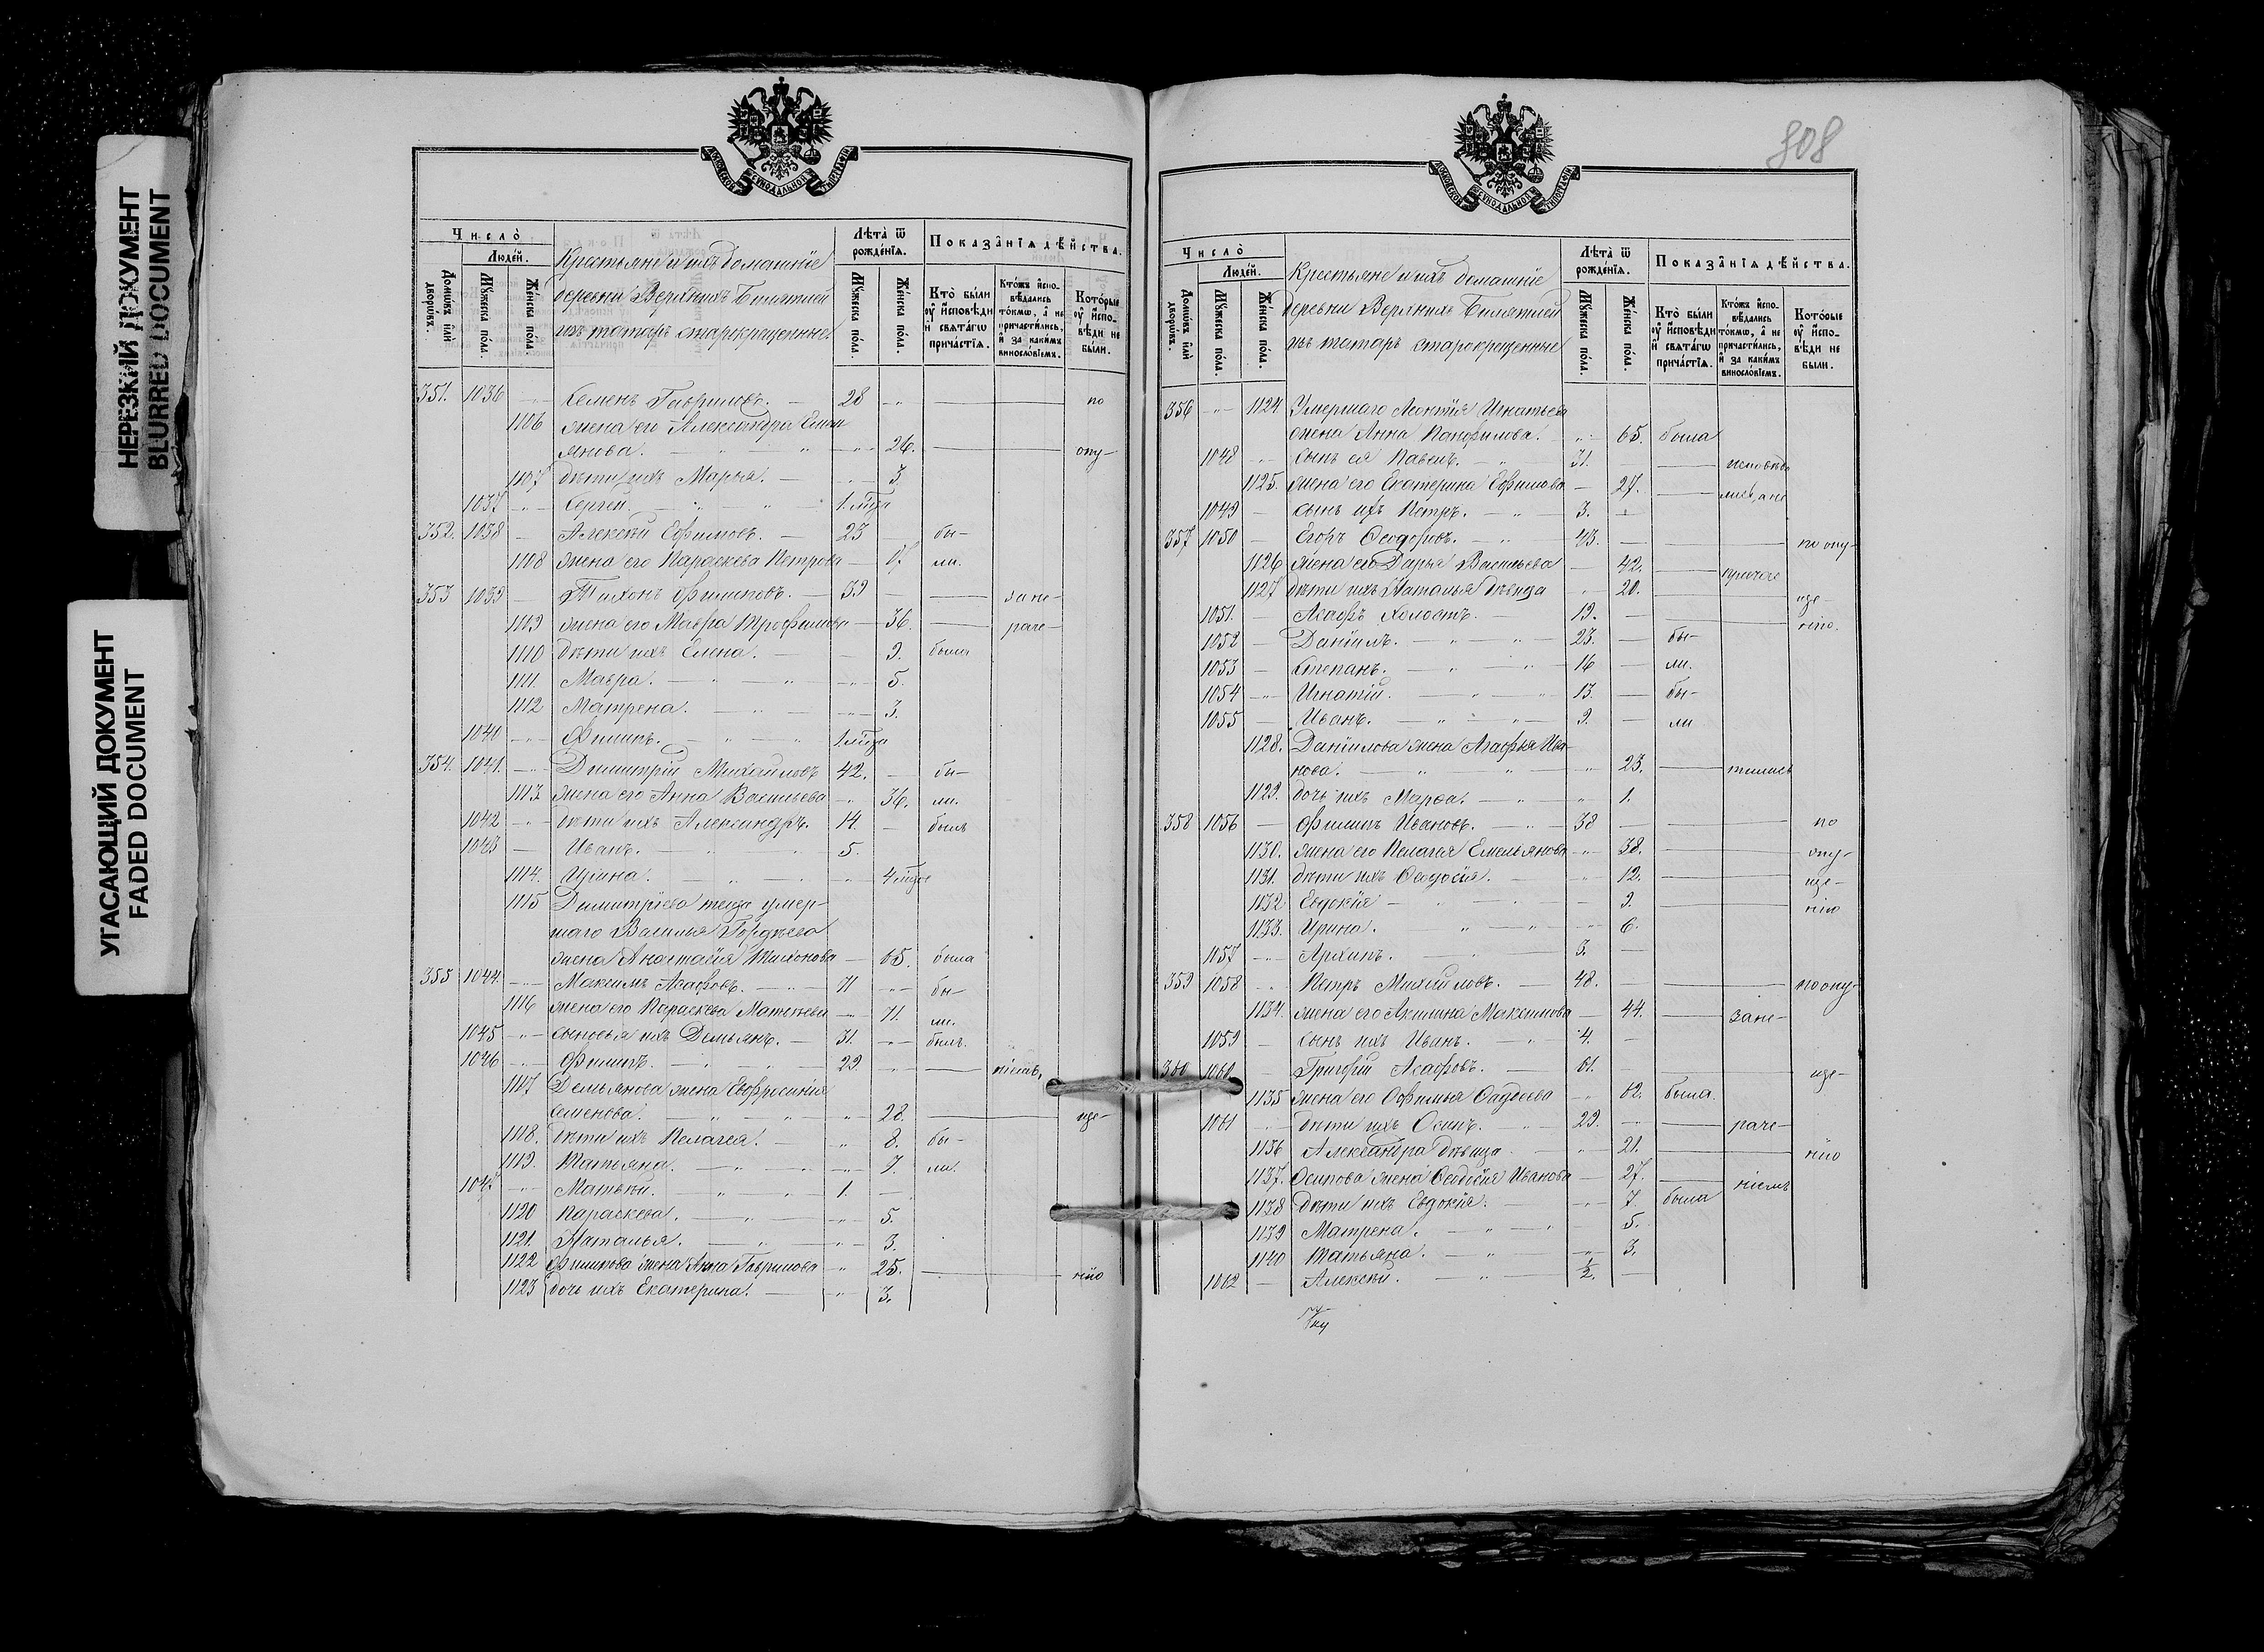 НЕРЕЗКИЙ ДОКУМЕНТ
BLURRED DOCUMENT
УГАСАЮЩИЙ ДОКУМЕНТ
FADED DOCUMENT
МОСКОВСКОЙ СѴНОДАЛЬНОЙ ТИПОГРАФІИ
Число̀
Люде́й.
Домѡ́въ и҆лѝ дворѡ́въ.
Мꙋ́жеска по́ла.
Же́нска по́ла.
Крестьяне и ихъ домашніе
деревни Верхнихъ
изъ татаръ старокрещенные.
Лѣта̀ ѿ рожде́нїѧ.
Мꙋ́жеска по́ла.
Же́нска по́ла.
Показа̑нїѧ дѣ́йства.
Кто̀ бы́ли оу҆ и҆сповѣ́ди и҆ свѧта́гѡ причастїѧ.
Кто́жъ и҆сповѣ́дались то́кмѡ, а҆ не причасти́лись, и҆ за каки́мъ винословїемъ.
Кото́рые оу҆ и҆сповѣ́ди не бы́ли.
351. 1036 Семенъ Гавриловъ. 28 по
1106 жена его Александра
янова. 26. опу-
1107 дѣти ихъ Марья. 3.
1037 Сергей. 1. года
352. 1038 Алексѣй Ефимовъ. 23 бы-
1108 жена его Параскева Петрова ли.
353 1039 Тихонъ Филиповъ. 39 за не-
1109 жена его Мавра Трофимова 36. раче-
1110 дѣти ихъ Елена. 9. была
1111 Мавра. 5.
1112 Матрена. 3.
1040 Филипъ. 1. года
354. 1041. Димитрій Михайловъ 42. бы-
1113 жена его Анна Васильева 36. ли.
1042 дѣти ихъ Александръ. 14. былъ
1043 Иванъ. 5.
1114. Ирина. 4
1115 Димитріева теща умер-
шаго Василья Гордѣева
жена Анастасія Тихонова 65. была
355 1044. Максимъ Агафовъ. 71 бы-
1116 жена его Параскева Матвѣева 71. ли.
1045 сыновья ихъ Демьянъ. 31. былъ.
1046 Филипъ. 29. ніемъ.
1117 Демьянова жена Евфросинія
Семенова. 28. ще-
1118. дѣти ихъ Пелагея. 8. бы-
1119. Татьяна. 7. ли.
1047 Матвѣй. 1.
1120 Параскева. 5.
1121. Наталья. 3.
1122 Филипова жена Анна Гаврилова 25. нію
1123 дочь ихъ Екатерина. 3.
808
МОСКОВСКОЙ СѴНОДАЛЬНОЙ ТИПОГРАФІИ
Число̀
Люде́й.
Домѡ́въ и҆лѝ дворѡ́въ.
Мꙋ́жеска по́ла.
Же́нска по́ла.
Крестьяне и ихъ домашніе
деревни Верхнихъ
изъ татаръ старокрещенные
Лѣта̀ ѿ рожде́нїѧ.
Мꙋ́жеска по́ла.
Же́нска по́ла.
Показа̑нїѧ дѣ́йства.
Кто̀ бы́ли оу҆ и҆сповѣ́ди и҆ свѧта́гѡ причастїѧ.
Кто́жъ и҆сповѣ́дались то́кмѡ, а҆ не причасти́лись, и҆ за каки́мъ винословїемъ.
Кото́рые оу҆ и҆сповѣ́ди не бы́ли.
356 1124 Умершаго Леонтія Игнатьева
жена Анна Панфилова. 65. была
1048 сынъ ея Павелъ. 31. исповѣда
1125. жена его Екатерина Ефимова 27. лись, а не
1049 сынъ ихъ Петръ. 3.
357 1050 Егоръ Ѳеодоровъ. 43. по опу-
1126 жена его Дарья Васильева 42. причас
1127 дѣти ихъ Наталья дѣвица 20. ще-
1051. Агафъ холостъ. 19. нію.
1052 Даніилъ. 23. бы-
1053 Степанъ. 16 ли.
1054 Игнатій. 13. бы-
1055 Иванъ. 9. ли
1128. Даніилова жена Агафья Ива-
нова. 23. тились
1129. дочь ихъ Марѳа. 1.
358 1056 Филипъ Ивановъ. 38 по
1130. жена его Пелагея Емельянова 38. опу-
1131. дѣти ихъ Ѳеодосія. 12. ще-
1132 Евдокія 9. нію
1133. Ирина. 6.
1057 Архипъ. 3.
359 1058 Петръ Михайловъ. 48. по опу-
1134. жена его Акилина Максимова 44. за не-
1059 сынъ ихъ Иванъ. 4.
360 1060 Григорій Агафовъ. 61. ще-
1135 жена его Ѳадѣева 62. была.
1061 дѣти ихъ Осипъ. 29. раче-
1136 Александра дѣвица 21. нію
1137. Осипова жена Ѳеодосія Иванова 27. ніемъ
1138 дѣти ихъ Евдокія. 7. была
1139 Матрена. 5.
1140 Татьяна. 3.
1062 Алексѣй. ½.